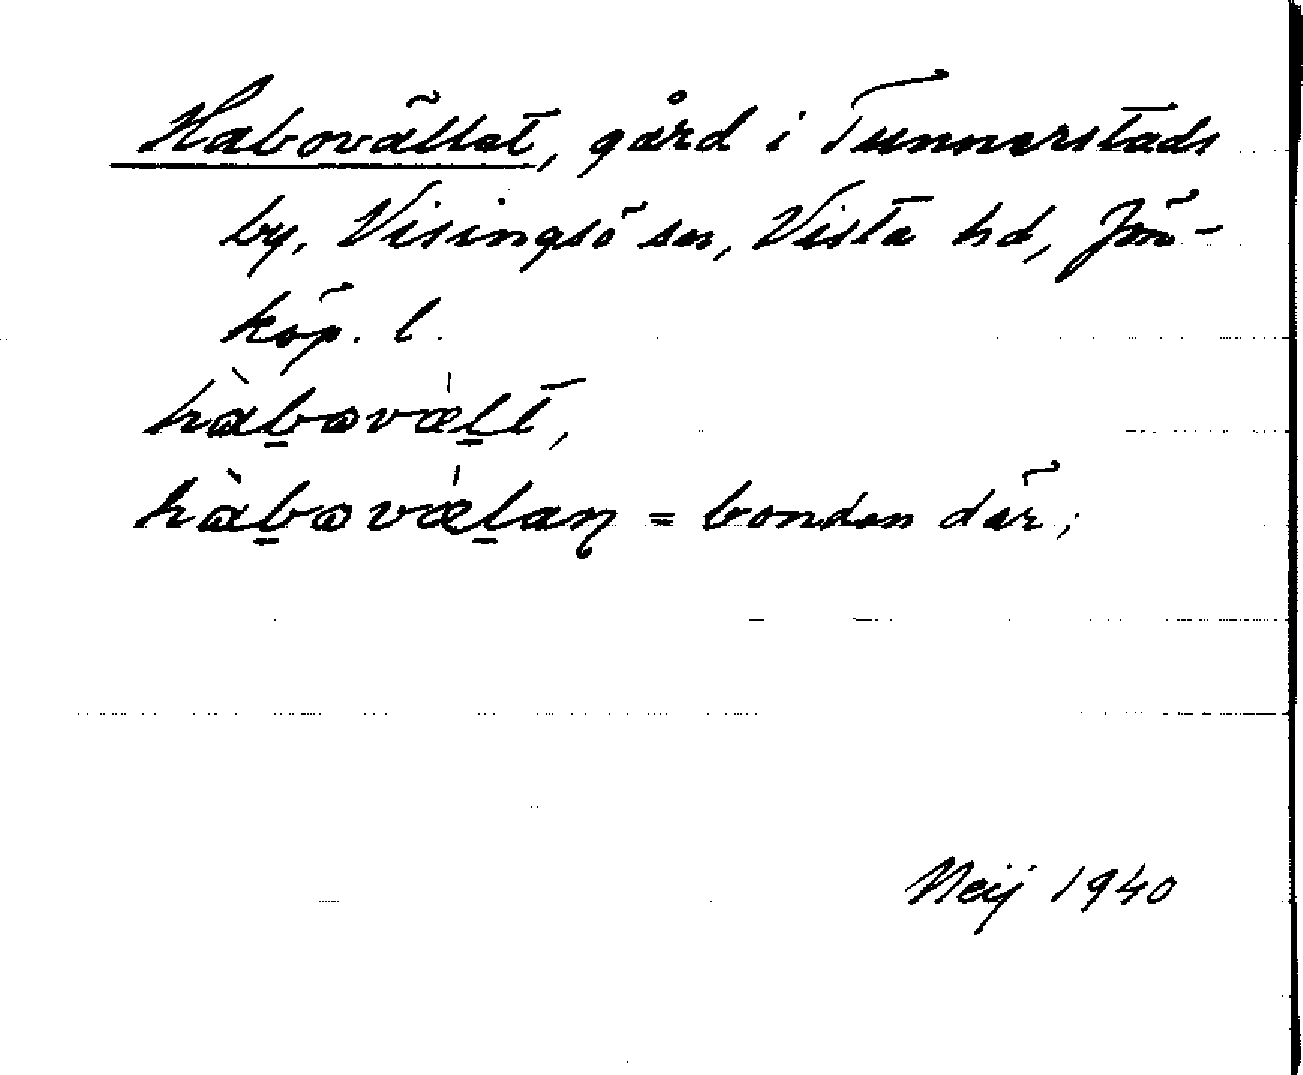 Habovället, gård i Tunnerstads
by, Visingsö sn, Vista hd, Jön-
köp. l.
hàbovæ̍lt,
hàbovæ̍laɳ = bonden där;
Neij 1940